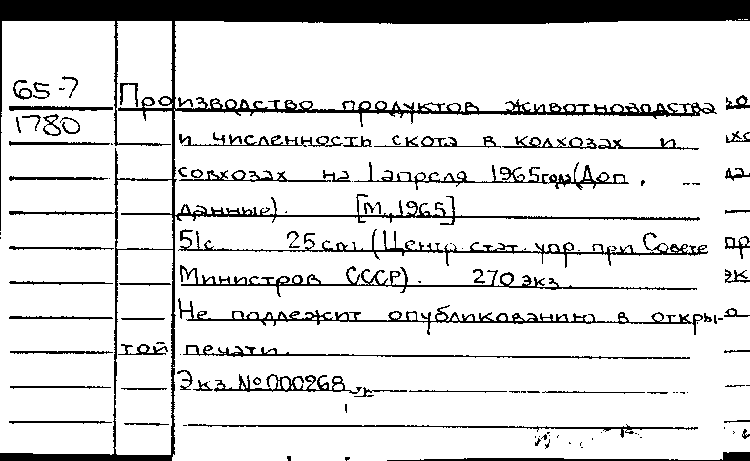 65-7
1780
Производство продуктов животноводства
и численность скота в колхозах и
совхозах на 1 апреля 1965 года (Доп.
данные). [М., 1965]
51с. 25 см. (Центр. стат. упр. при Совете
Министров СССР). 270 экз.
Не подлежит опубликованию в откры-
той печати.
Экз. № 000268